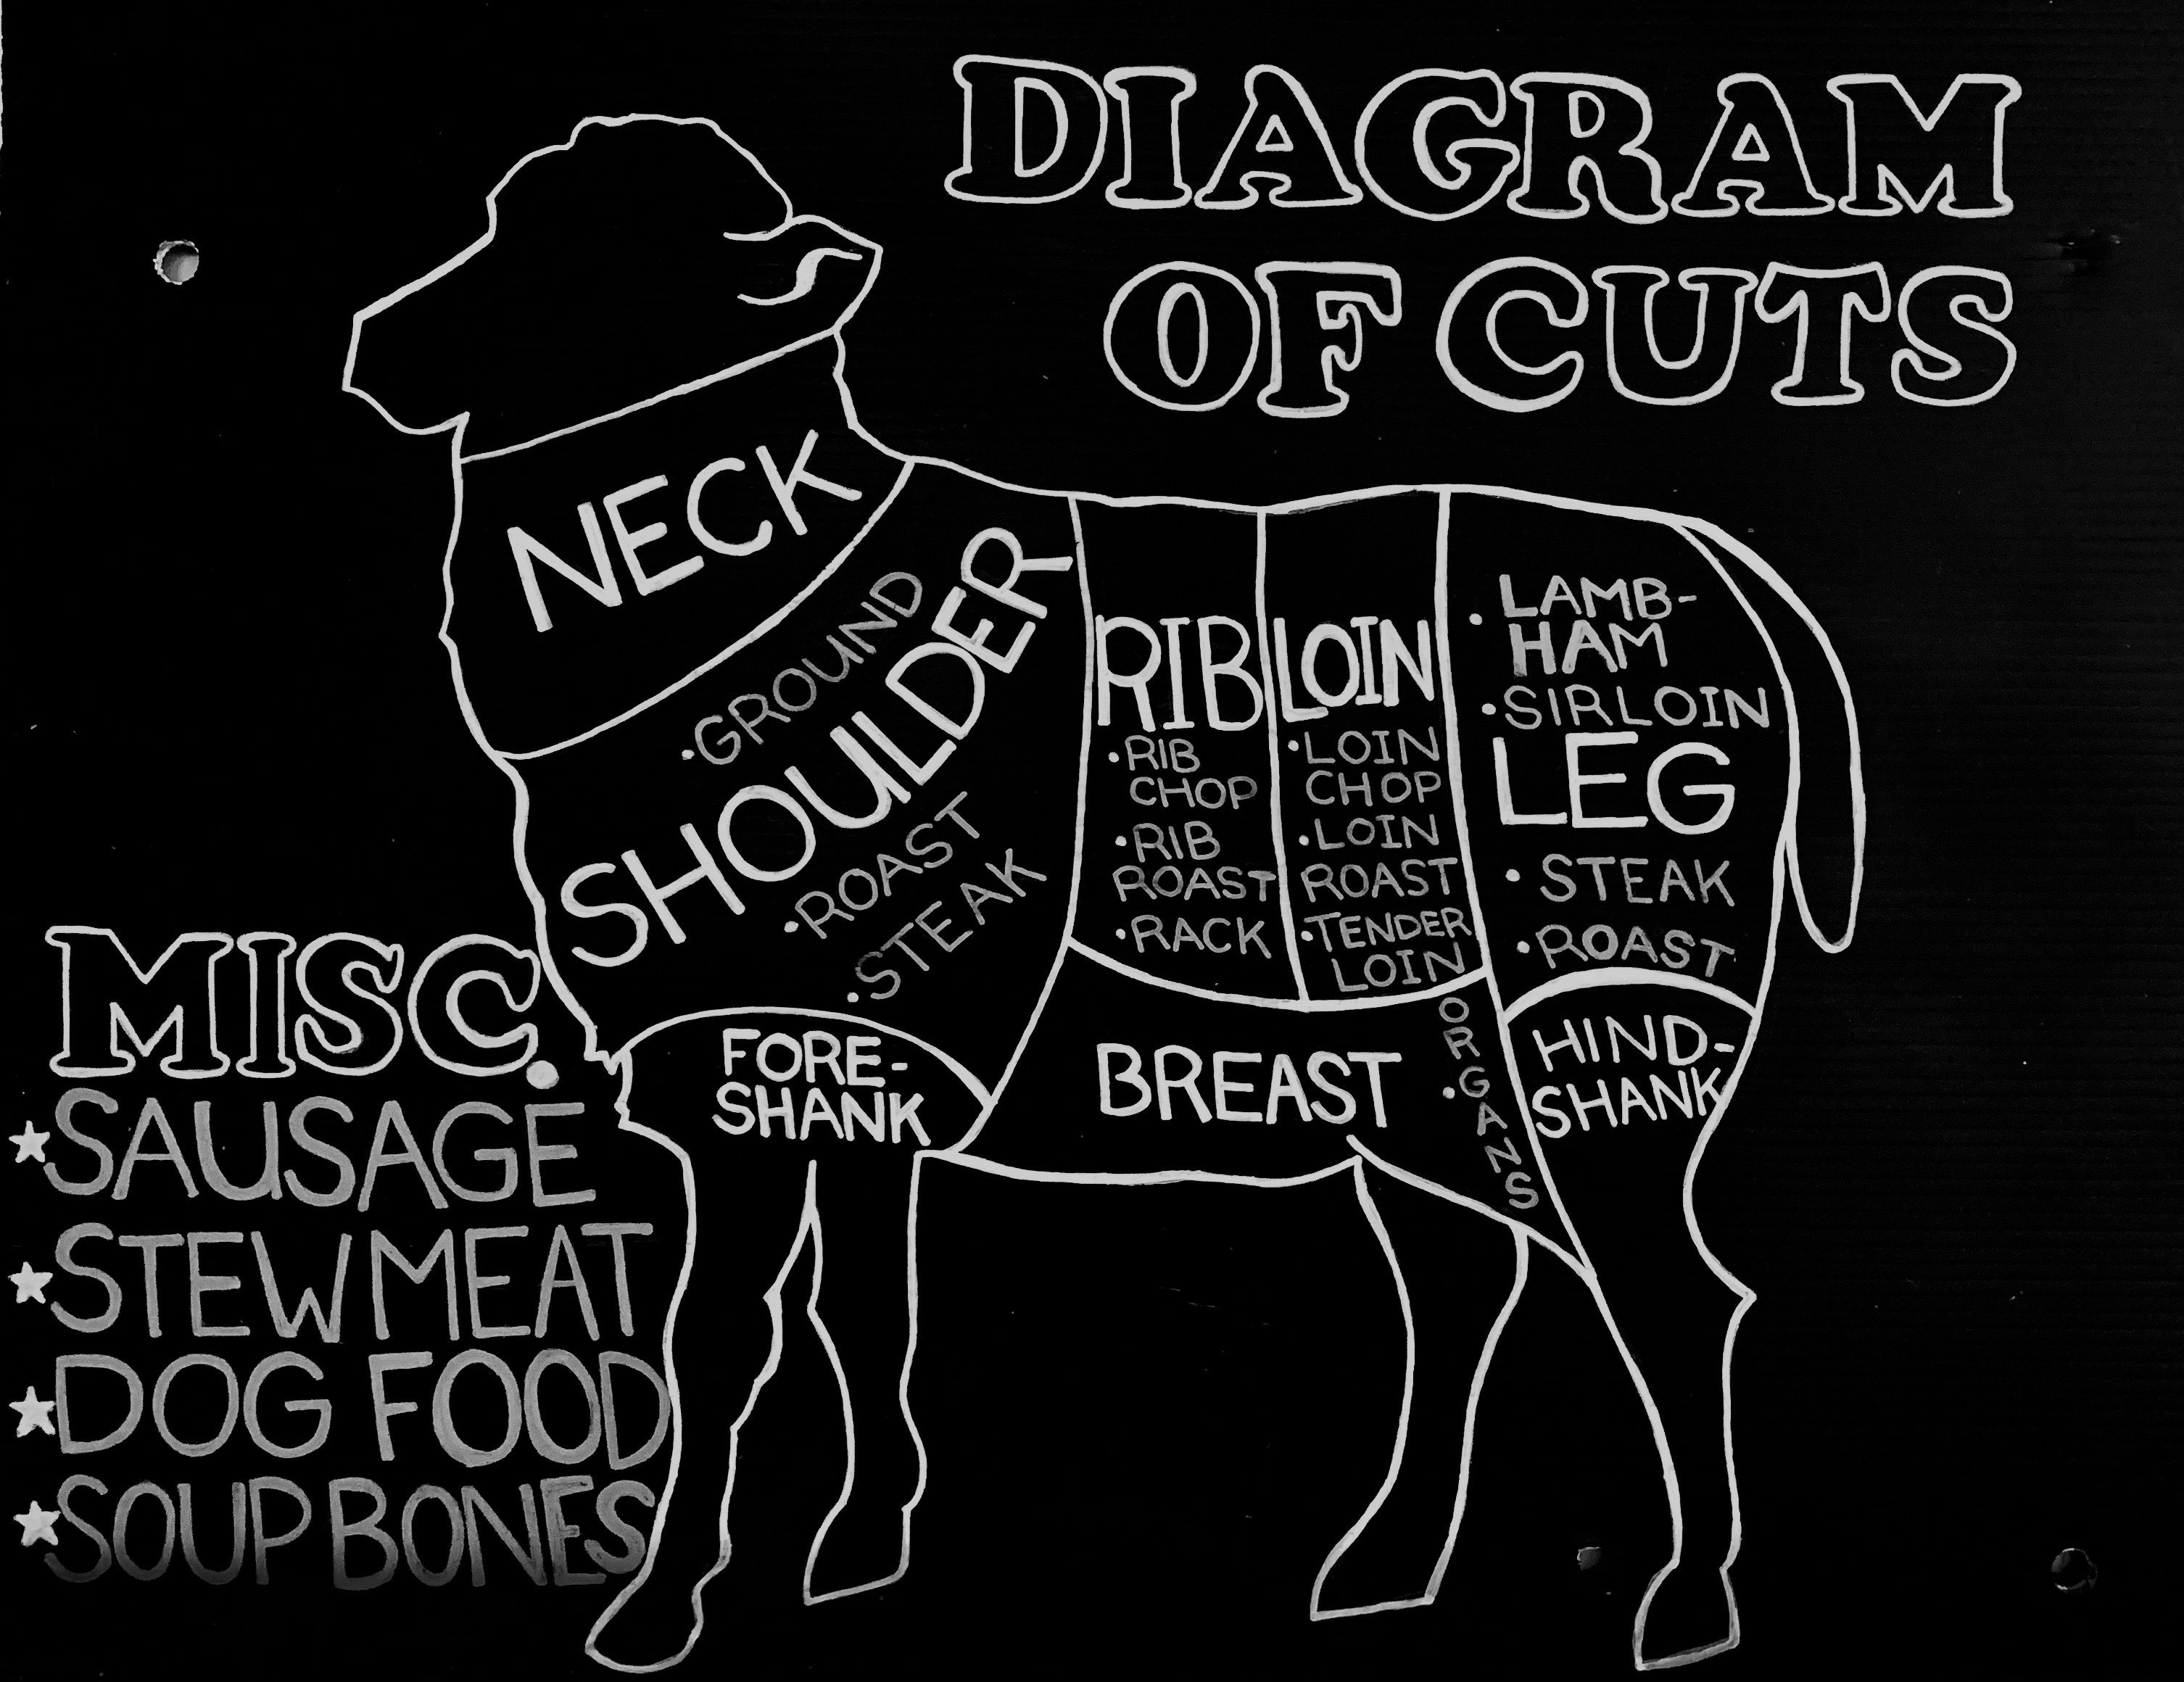 DIAGRAM
OF CUTS
NECK
• GROUND
SHOULDER
• ROAST
• STEAK
RIB
• RIB
CHOP
• RIB
ROAST
• RACK
LOIN
• LOIN
CHOP
• LOIN
ROAST
• TENDER
LOIN
• LAMB-
HAM
• SIRLOIN
LEG
• STEAK
• ROAST
FORE-
SHANK
BREAST
• ORGANS
HIND-
SHANK
MISC.
★ SAUSAGE
★ STEW MEAT
★ DOG FOOD
★ SOUP BONES